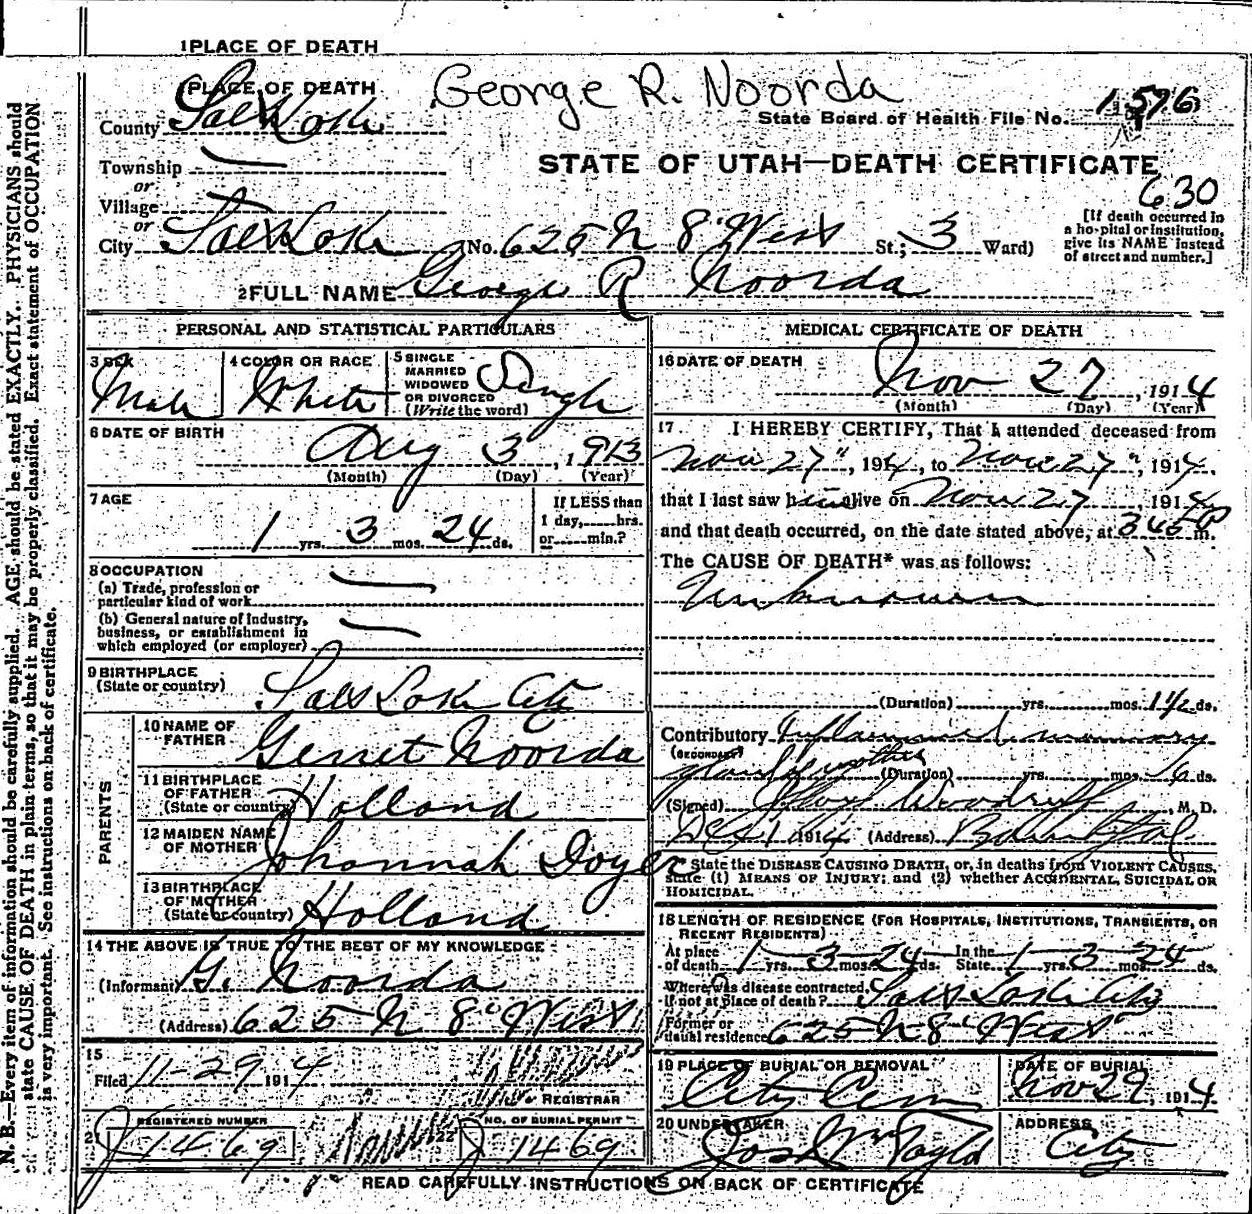 1 PLACE OF DEATH
PLACE OF DEATH
George R. Noorda
County Salt Lake
State Board of Health File No. 1576
Township
or
STATE OF UTAH—DEATH CERTIFICATE
630
Village
or
City Salt Lake No. 625 N 8" West St.; 3 Ward)
[If death occurred in
a hospital or institution,
give its NAME instead
of street and number.]
2 FULL NAME George R Noorda
PERSONAL AND STATISTICAL PARTICULARS
3 SEX
Male
4 COLOR OR RACE
White
5 SINGLE
MARRIED
WIDOWED
OR DIVORCED
(Write the word)
Single
6 DATE OF BIRTH
Aug 3, 1913
(Month) (Day) (Year)
7 AGE
1 yrs. 3 mos. 24 ds.
If LESS than
1 day, hrs.
or min.?
8 OCCUPATION
(a) Trade, profession or
particular kind of work
(b) General nature of Industry,
business, or establishment in
which employed (or employer)
9 BIRTHPLACE
(State or country)
Salt Lake City
PARENTS
10 NAME OF
FATHER
Gerret Noorda
11 BIRTHPLACE
OF FATHER
(State or country)
Holland
12 MAIDEN NAME
OF MOTHER
Johannah Doyer
13 BIRTHPLACE
OF MOTHER
(State or country)
Holland
14 THE ABOVE IS TRUE TO THE BEST OF MY KNOWLEDGE
(Informant) G. Noorda
(Address) 625 N 8" West
15
Filed 11-29 1914
REGISTRAR
REGISTERED NUMBER
21 J 1469
NO. OF BURIAL PERMIT
22 J 1469
MEDICAL CERTIFICATE OF DEATH
16 DATE OF DEATH
Nov 27, 1914
(Month) (Day) (Year)
17. I HEREBY CERTIFY, That I attended deceased from
Nov 27", 1914, to Nov 27", 1914,
that I last saw him alive on Nov 27 1914
and that death occurred, on the date stated above, at 345 P m.
The CAUSE OF DEATH* was as follows:
Unknown
(Duration) yrs. mos. 1½ ds.
Contributory Inflammed mammary
(SECONDARY)
glands of mother (Duration) yrs. mos. 6 ds.
(Signed) Woodruff, M. D.
Dec 1 1914 (Address)
State the DISEASE CAUSING DEATH, or, in deaths from VIOLENT CAUSES,
state (1) MEANS OF INJURY; and (2) whether ACCIDENTAL, SUICIDAL OR
HOMICIDAL.
18 LENGTH OF RESIDENCE (FOR HOSPITALS, INSTITUTIONS, TRANSIENTS, OR
RECENT RESIDENTS)
At place
of death 1 yrs. 3 mos. 24 ds. In the
State 1 yrs. 3 mos. 24 ds.
Where was disease contracted,
if not at place of death? Salt Lake City
Former or
usual residence 625 N 8" West
19 PLACE OF BURIAL OR REMOVAL
City Cem
DATE OF BURIAL
Nov 29, 1914
20 UNDERTAKER
Jos Wm Taylor
ADDRESS
City
READ CAREFULLY INSTRUCTIONS ON BACK OF CERTIFICATE
N. B.—Every item of information should be carefully supplied. AGE should be stated EXACTLY. PHYSICIANS should
state CAUSE OF DEATH in plain terms, so that it may be properly classified. Exact statement of OCCUPATION
is very important. See instructions on back of certificate.